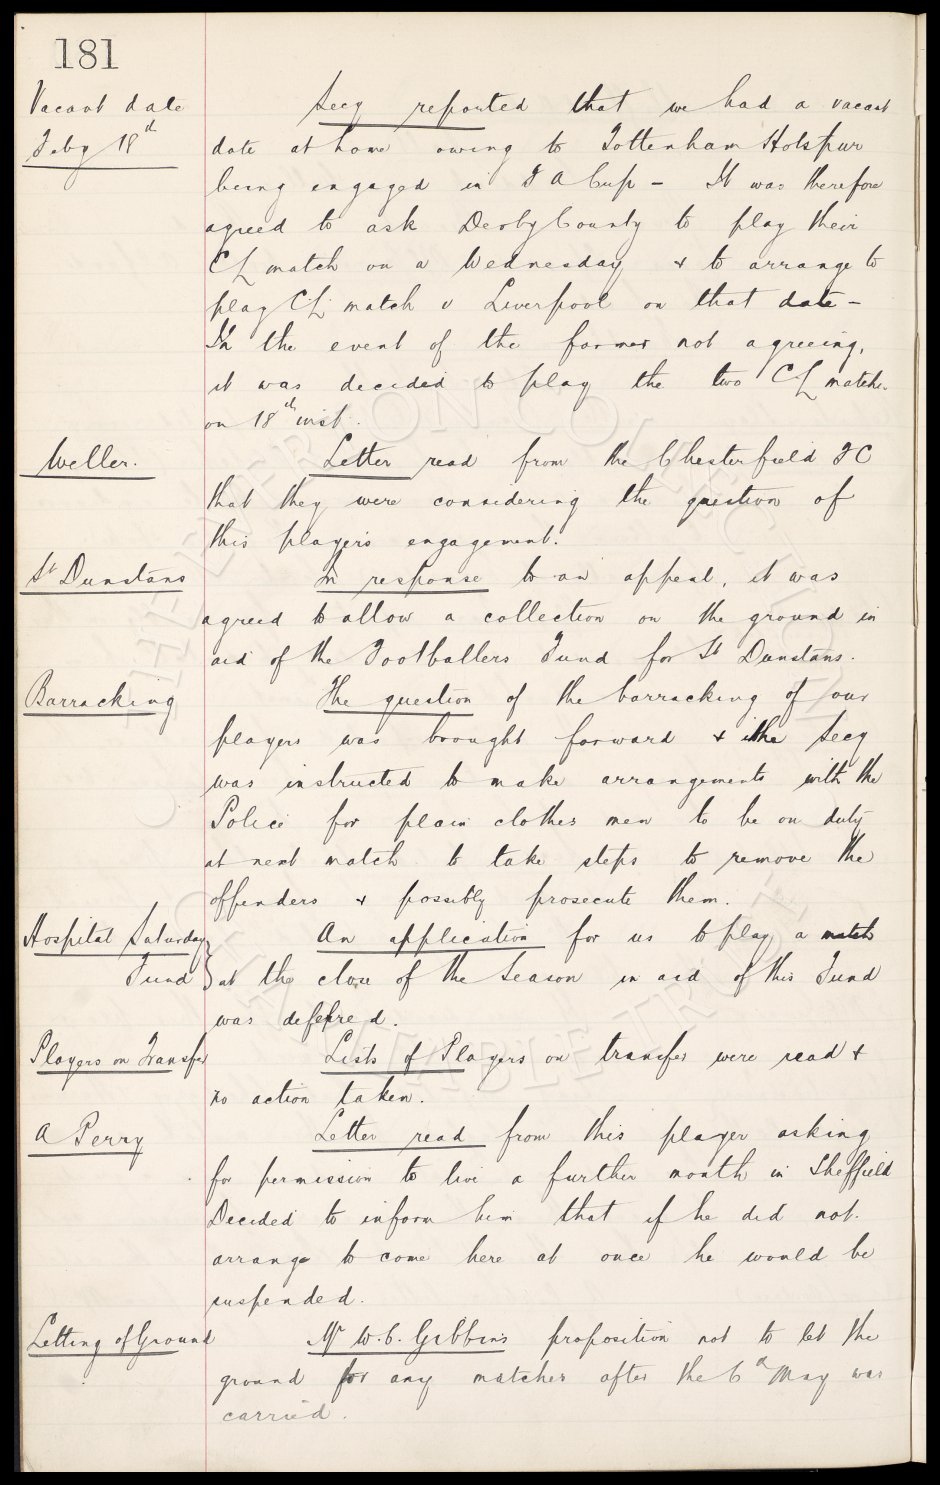 181
Vacant date
Feby 18th
Secy reported that we had a vacant
date at home owing to Tottenham Hotspur
being engaged in F A Cup - It was therefore
agreed to ask Derby County to play their
CL match on a Wednesday & to arrange to
play CL match v Liverpool on that date -
In the event of the former not agreeing,
it was decided to play the two CL matches
on 18th inst.
Weller.
Letter read from the Chesterfield FC
that they were considering the question of
this player's engagement.
St Dunstans
In response to an appeal, it was
agreed to allow a collection on the ground in
aid of the Footballers Fund for St Dunstans.
Barracking
The question of the barracking of our
players was brought forward & the Secy
was instructed to make arrangements with the
Police for plain clothes men to be on duty
at next match to take steps to remove the
offenders & possibly prosecute them.
Hospital Saturday
Fund
An application for us to play a match
at the close of the Season in aid of this Fund
was deferred.
Players on Transfer
Lists of Players on transfer were read &
no action taken.
A Perry
Letter read from this player asking
for permission to live a further month in Sheffield
Decided to inform him that if he did not
arrange to come here at once he would be
suspended.
Letting of Ground
Mr W.C. Gibbins proposition not to let the
ground for any matches after the 6th May was
carried.
THE EVERTON COLLECTION
CHARITABLE TRUST